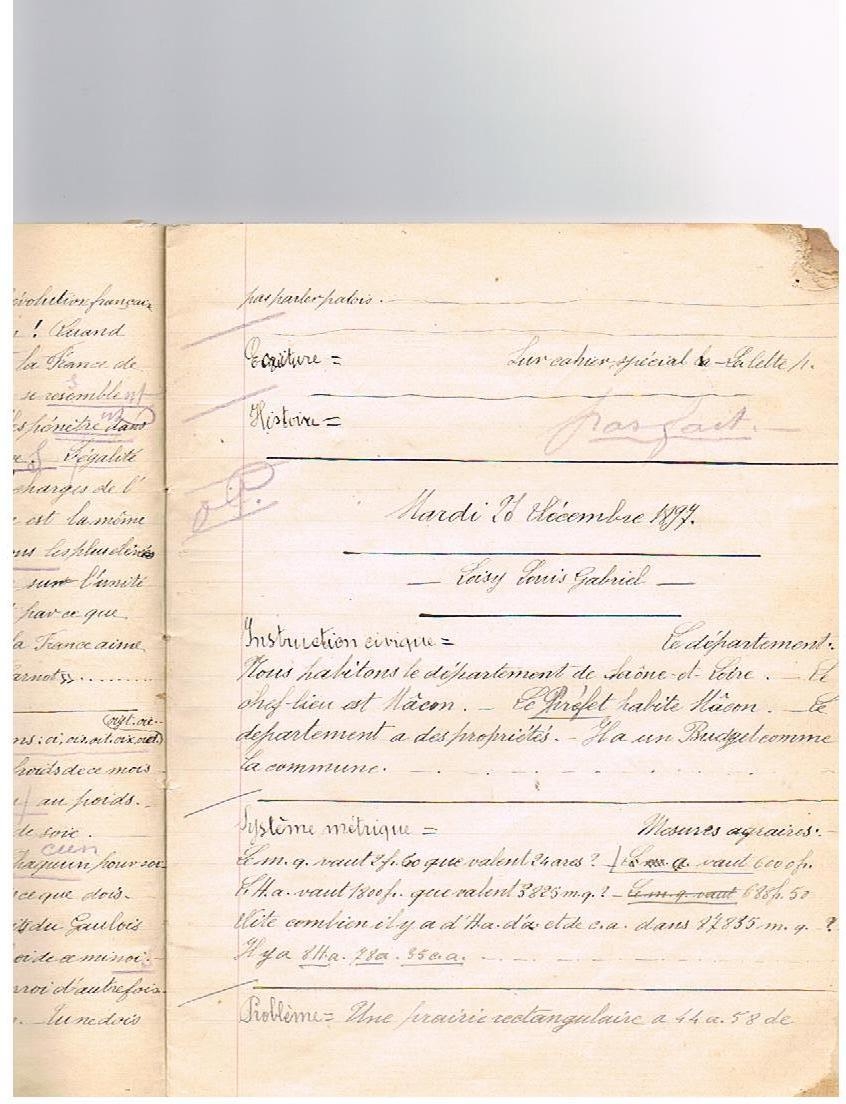 évolution françai
! Quand
la France de
se resemble
pénètre dans
L'égalité
charges de l'
est la même
les plus
sur l'unité
par ce que
la France aime
arnot».........
oyt. oie.
ns: oi,
froids de ce mois
au poids.
de soie.
cien
pour
ce que dois-
du Gaulois
oi de ce minoi.
roi d'autrefois.
- Tu ne dois
pas parler patois.
Ecriture = Sur cahier spécial la - La lette
Histoire = pas fait.
Mardi 28 Décembre 1897.
— Loisy Louis Gabriel —
Instruction civique = Le département:
Nous habitons le département de Saône-et-Loire. - Le
chef-lieu est Mâcon. - Le Préfet habite Mâcon. - Le
département a des propriétés. - Il a un Budget comme
la commune.
Système métrique = Mesures agraires:
Le m. q. vaut 2f.50 que valent 24 ares? - Le m. q. vaut 6000f.
L'H.a. vaut 1800f. que valent 3825 m.q.? - Le m.q. vaut 688f.50
Dite combien il y a d'Ha. d'a. et de c.a. dans 87835 m. q. ?
Il y a 8Ha. 78a. 35c.a.
Problème = Une prairie rectangulaire a 44 a. 58 de